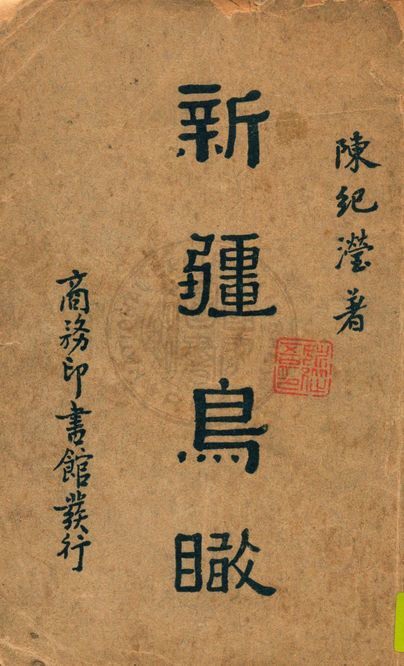 陳紀瀅著
新疆鳥瞰
商務印書館發行